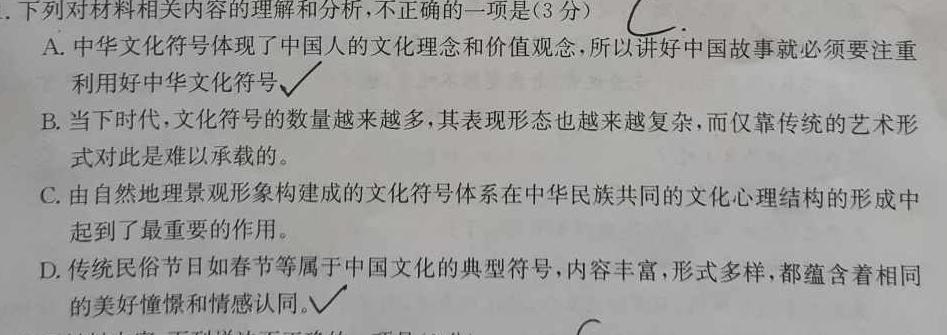 . 下列对材料相关内容的理解和分析,不正确的一项是(3 分)
A. 中华文化符号体现了中国人的文化理念和价值观念,所以讲好中国故事就必须要注重
利用好中华文化符号。
B. 当下时代,文化符号的数量越来越多,其表现形态也越来越复杂,而仅靠传统的艺术形
式对此是难以承载的。
C. 由自然地理景观形象构建成的文化符号体系在中华民族共同的文化心理结构的形成中
起到了最重要的作用。
D. 传统民俗节日如春节等属于中国文化的典型符号,内容丰富,形式多样,都蕴含着相同
的美好憧憬和情感认同。